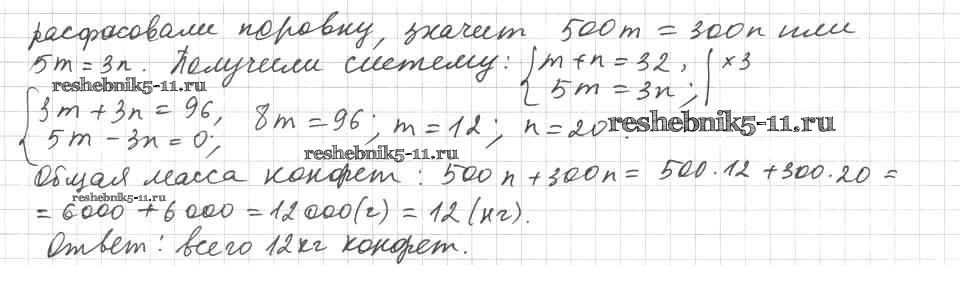 расфасовали поровну, значит 500m = 300n или
5m = 3n. Получили систему: { m + n = 32, | ×3
5m = 3n; |
reshebnik5-11.ru
{ 3m + 3n = 96,
5m − 3n = 0; 8m = 96; m = 12; n = 20
reshebnik5-11.ru
reshebnik5-11.ru
Общая масса конфет: 500n + 300n = 500·12 + 300·20 =
reshebnik5-11.ru
= 6000 + 6000 = 12000(г) = 12 (кг).
Ответ: всего 12кг конфет.